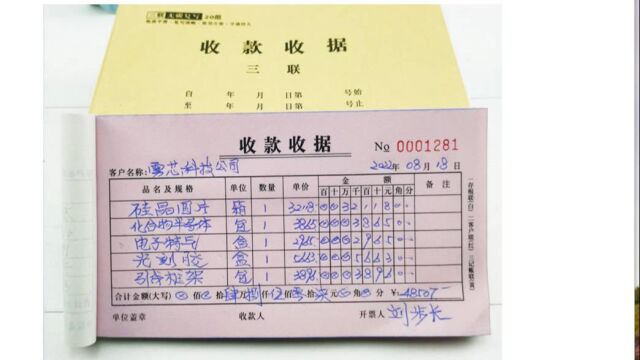 三联无碳复写20组
收款收据
三联
自 年 月 日第 号始
至 年 月 日第 号止
收款收据 No 0001281
客户名称: 雲芯科技公司 2022年08月18日
品名及规格 单位 数量 单价 金额 备注
百十万千百十元角分
硅晶圆片 箱 1 32118 ⊗⊗3211800
化合物半导体 包 1 3865 ⊗⊗⊗386500
电子特气 盒 1 2965 ⊗⊗⊗296500
光刻胶 盒 1 5663 ⊗⊗⊗566300
引线框架 包 1 3896 ⊗⊗⊗389600
合计金额(大写) ⊗佰⊗拾肆万捌仟伍佰零拾柒元⊗角⊗分 ¥48507
单位盖章 收款人 开票人 刘步长